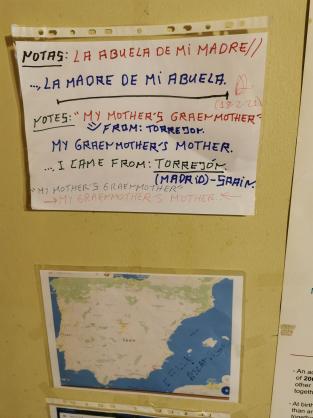 NOTAS: LA ABUELA DE MI MADRE//
..., LA MADRE DE MI ABUELA.
(18-2-21)
NOTES: "MY MOTHER'S GRAEMMOTHER"
FROM: TORREJON.
MY GRAEMMOTHER'S MOTHER.
..., I CAME FROM: TORREJÓN.
(MADRID)-SPAIN.
"MY MOTHER'S GRAEMMOTHER"
→MY GRAEMMOTHER'S MOTHER.←
- An a
of 200
other
togeth
- At birth
than an
togeth